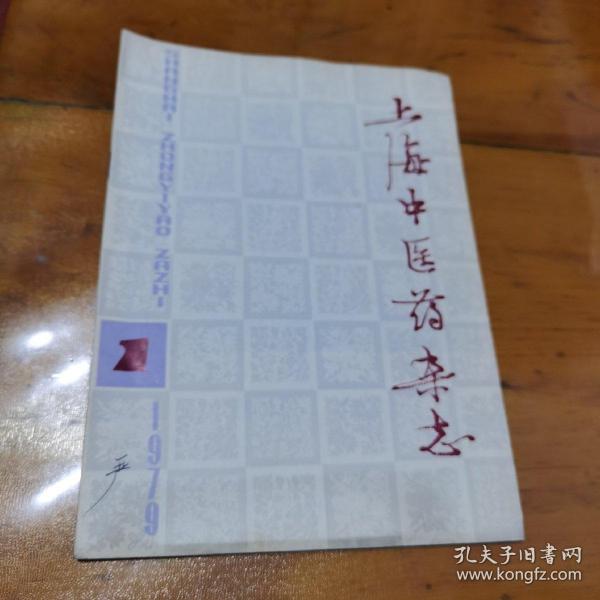 上海中医药杂志
SHANGHAI ZHONGYIYAO ZAZHI
1979
严
孔夫子旧书网
www.kongfz.com